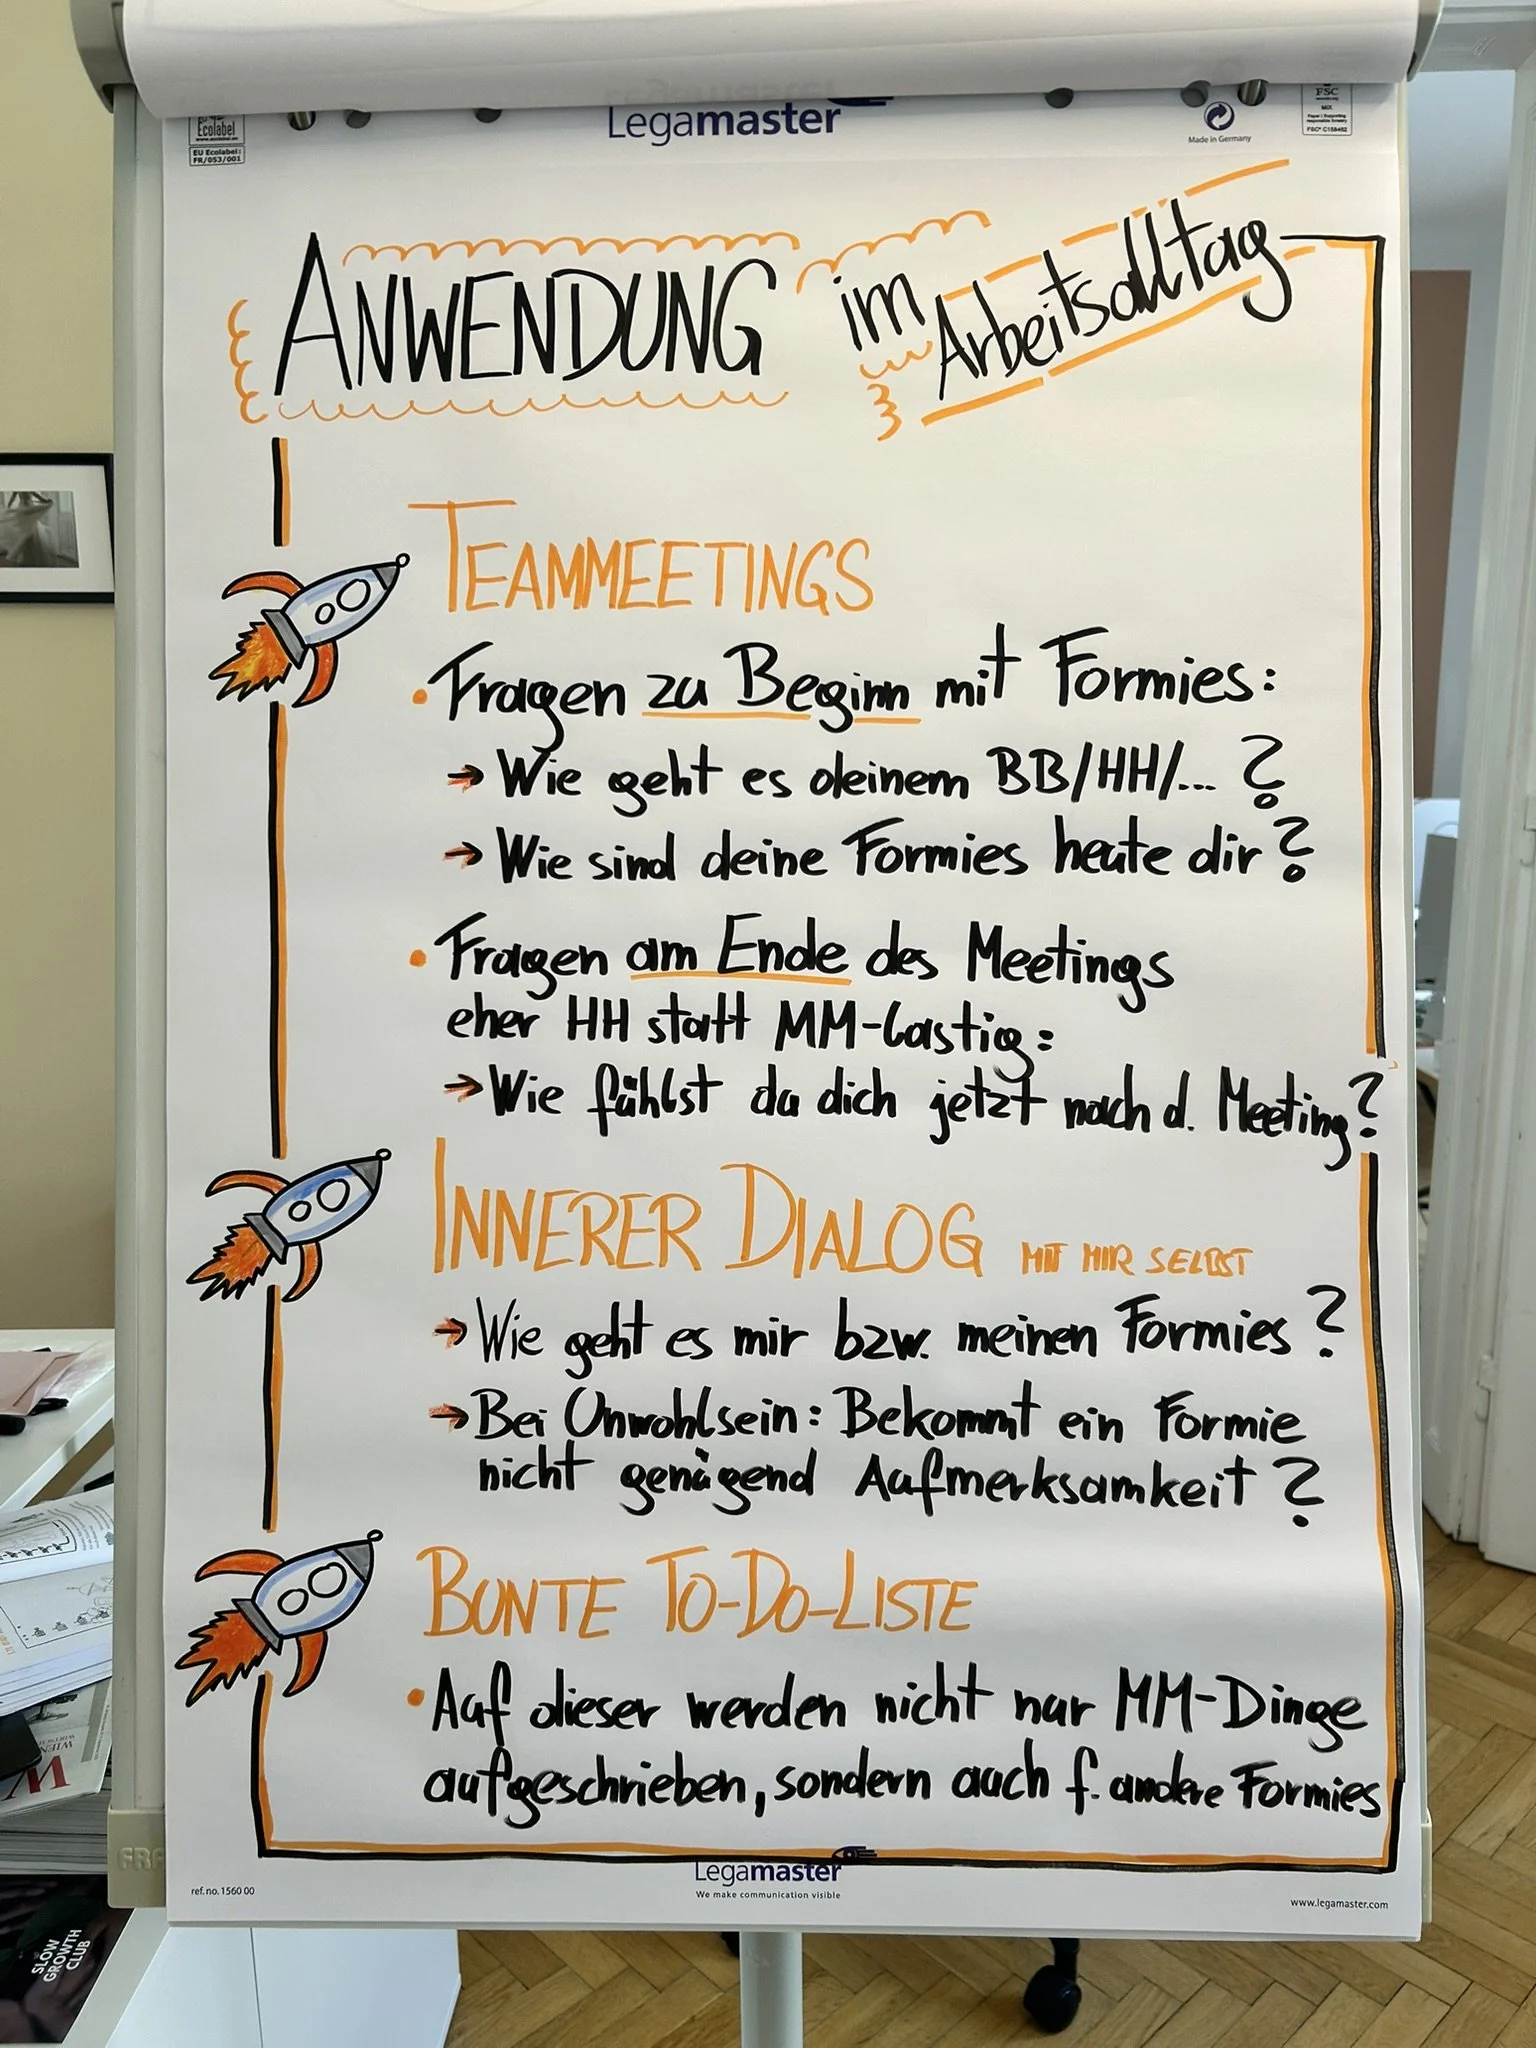 Ecolabel
EU Ecolabel:
FR/053/001
Legamaster
Made in Germany
FSC
MIX
Paper | Supporting
responsible forestry
FSC® C158462
ANWENDUNG im Arbeitsalltag
TEAMMEETINGS
• Fragen zu Beginn mit Formies:
→ Wie geht es deinem BB/HH/... ?
→ Wie sind deine Formies heute dir?
• Fragen am Ende des Meetings
eher HH statt MM-lastig:
→ Wie fühlst du dich jetzt nach d. Meeting?
INNERER DIALOG MIT MIR SELBST
→ Wie geht es mir bzw. meinen Formies?
→ Bei Unwohlsein: Bekommt ein Formie
nicht genügend Aufmerksamkeit?
BUNTE TO-DO-LISTE
• Auf dieser werden nicht nur MM-Dinge
aufgeschrieben, sondern auch f. andere Formies
Legamaster
We make communication visible
ref.no. 1560 00
www.legamaster.com
SLOW
GROWTH
CLUB